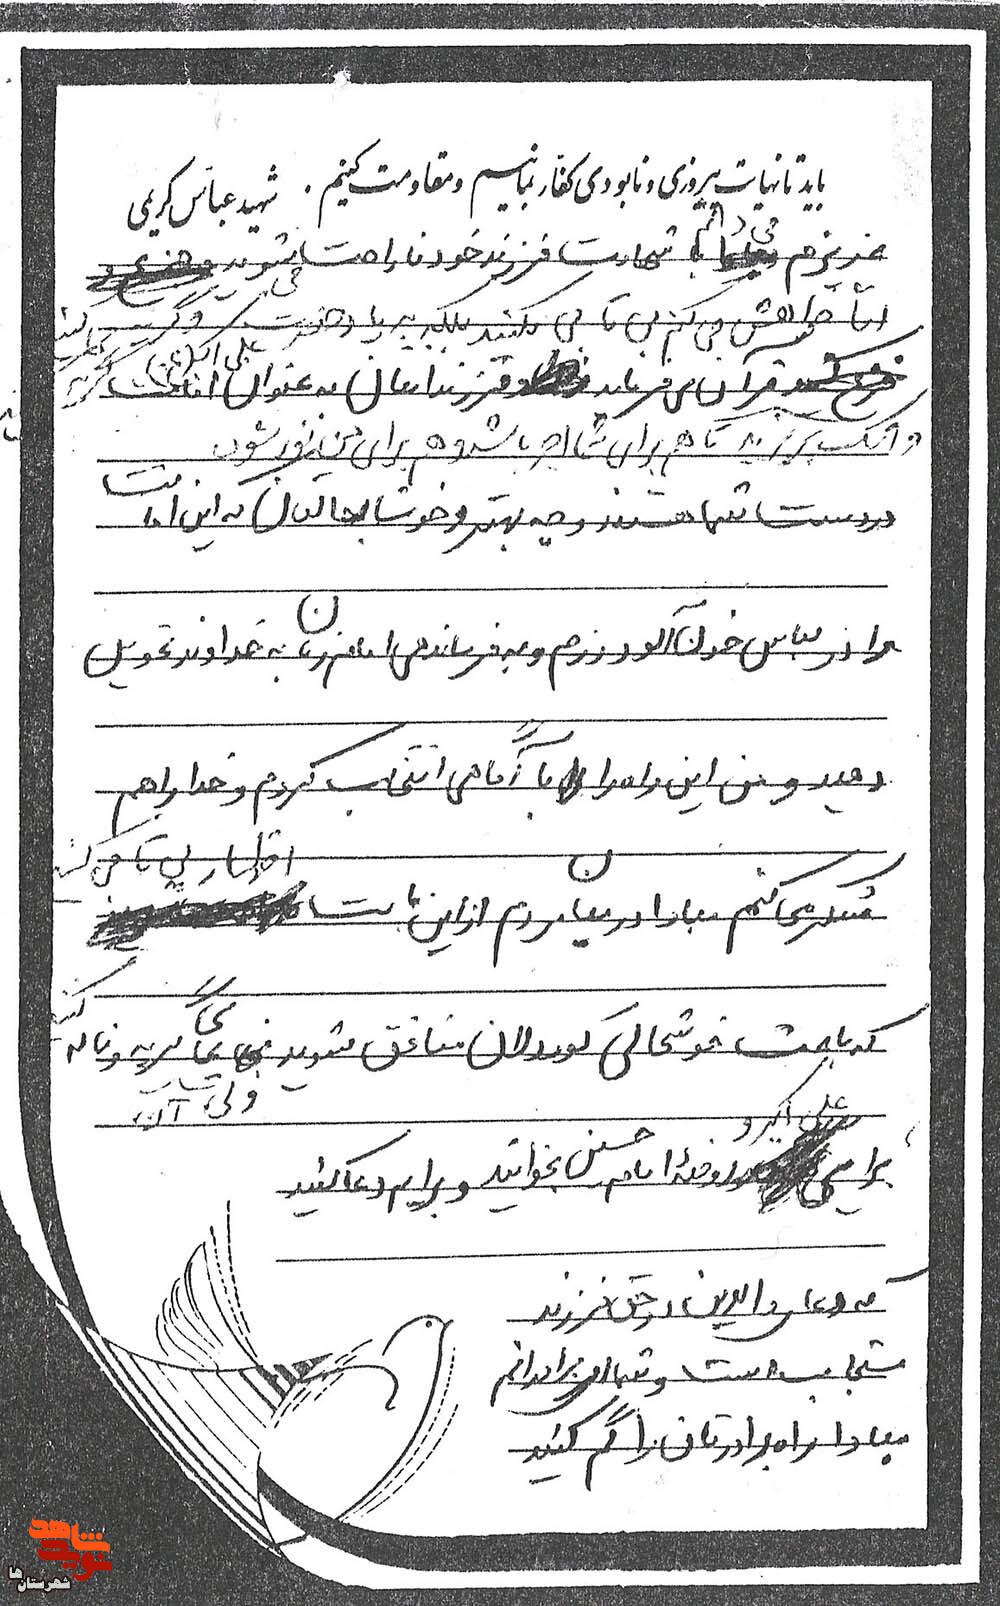 باید تا نهایت پیروزی و نابودی کفار بمانیم و مقاومت کنیم . شهید عباس کریمی
عزیزم می دانم با شهادت فرزند خود ناراحت می شوید
اما خواهش می کنم بی تابی نکنید بلکه به یاد حضرت علی اکبر گریه کنید
و اشک بریزید تا هم برای شما اجر باشد و هم برای من نور شود
قرآن می فرماید فرزندانتان به عنوان امانت
در دست شما هستند و چه بهتر و خوشا بحالتان که این امانت
را در لباس خون آلود رزم و به فرماندهی امام زمان به خداوند تحویل
دهید و من این راه را با آگاهی انتخاب کردم و خدا را هم
شکر می کنم مبادا در میان مردم از این بابت اظهار بی تابی کنید
که باعث خوشحالی کوردلان منافق شوید بجای گریه و ناله
برایم روضهٔ علی اکبر و امام حسین بخوانید و برایم دعا کنید
که دعای والدین در حق فرزند
مستجاب است و شما ای برادرانم
مبادا راه برادرتان را گم کنید
نوید شاهد
شهرستان ها